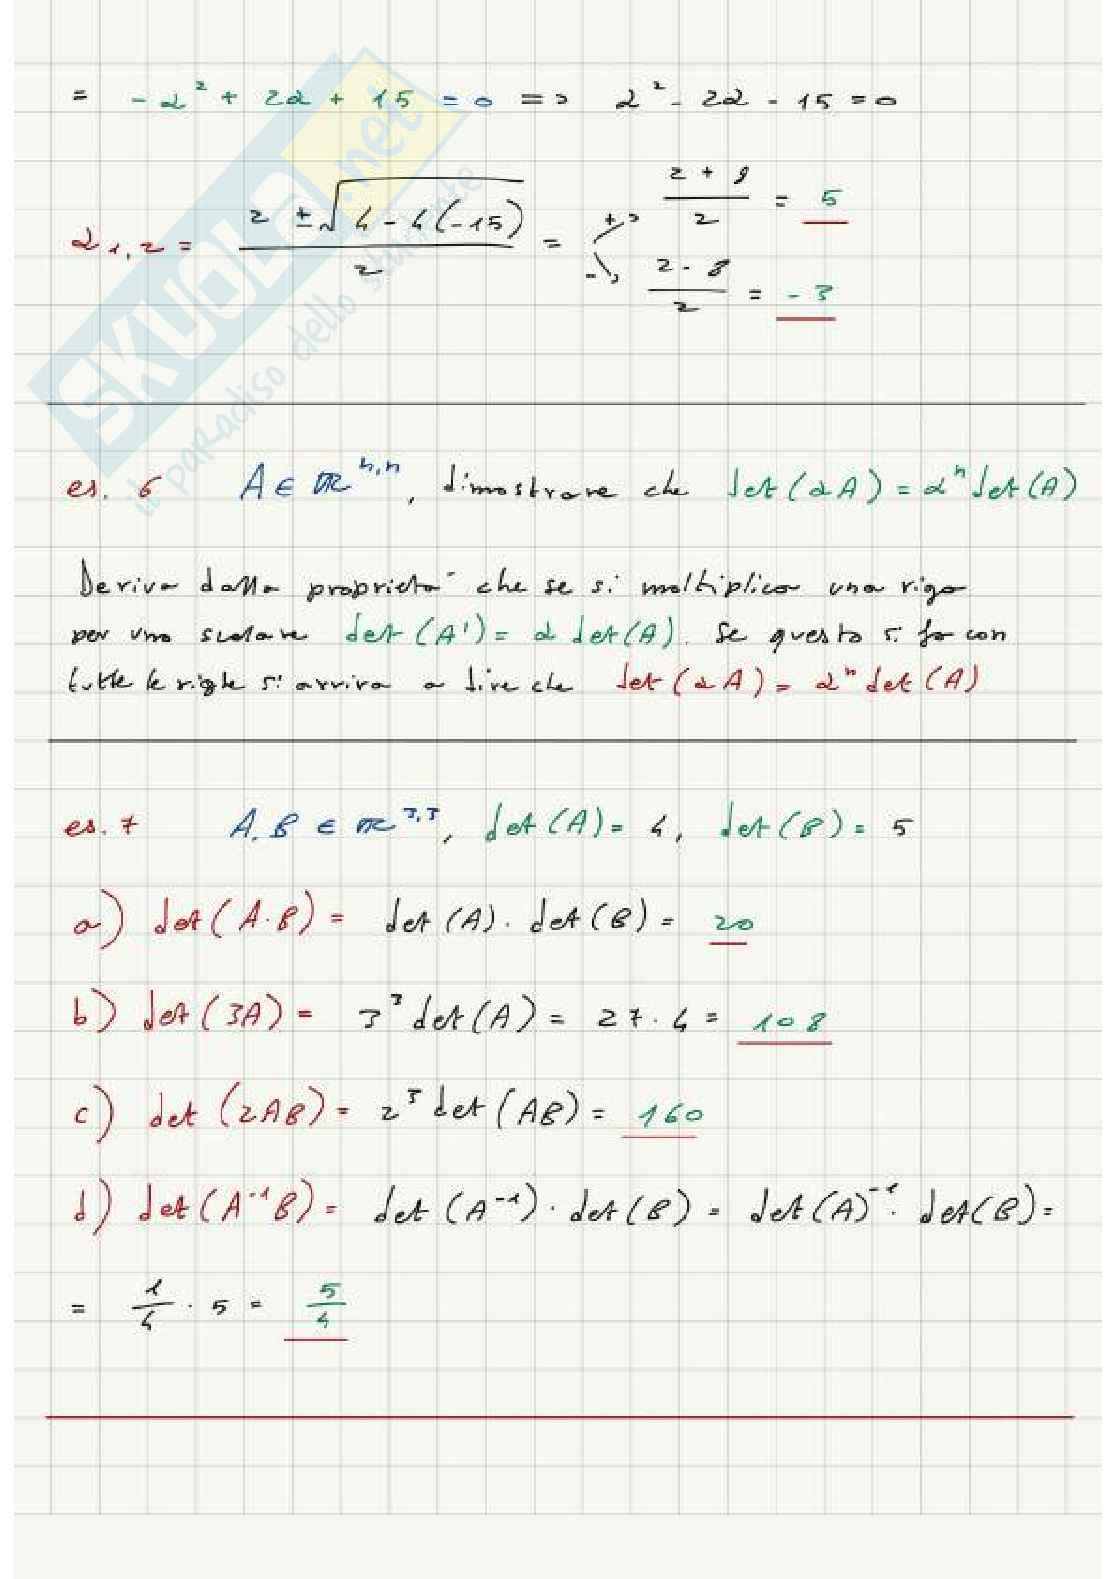 = -α² + 2α + 15 = 0 => α² - 2α - 15 = 0
α₁,₂ = (2 ± √(4 - 4(-15))) / 2 = +→ (2 + 8) / 2 = 5
-→ (2 - 8) / 2 = -3
SKUOLA.net
il paradiso dello studente
es. 6 A ∈ ℝⁿ,ⁿ, dimostrare che det(αA) = αⁿ det(A)
Deriva dalla proprietà che se si moltiplica una riga
per uno scalare det(A') = α det(A). Se questo si fa con
tutte le righe si arriva a dire che det(αA) = αⁿ det(A)
es. 7 A, B ∈ ℝ³,³, det(A) = 4, det(B) = 5
a) det(A·B) = det(A) · det(B) = 20
b) det(3A) = 3³ det(A) = 27 · 4 = 108
c) det(2AB) = 2³ det(AB) = 160
d) det(A⁻¹B) = det(A⁻¹) · det(B) = det(A)⁻¹ · det(B) =
= 1/4 · 5 = 5/4